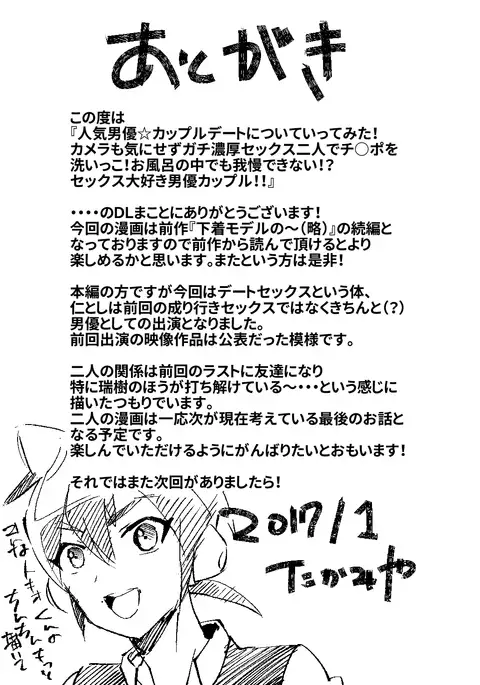 あとがき
この度は
『人気男優☆カップルデートについていってみた!
カメラも気にせずガチ濃厚セックス二人でチ○ポを
洗いっこ!お風呂の中でも我慢できない!?
セックス大好き男優カップル!!』
・・・・のDLまことにありがとうございます!
今回の漫画は前作『下着モデルの～(略)』の続編と
なっておりますので前作から読んで頂けるとより
楽しめるかと思います。またという方は是非!
本編の方ですが今回はデートセックスという体、
仁としは前回の成り行きセックスではなくきちんと(?)
男優としての出演となりました。
前回出演の映像作品は公表だった模様です。
二人の関係は前回のラストに友達になり
特に瑞樹のほうが打ち解けている～・・・という感じに
描いたつもりでいます。
二人の漫画は一応次が現在考えている最後のお話と
なる予定です。
楽しんでいただけるようにがんばりたいとおもいます!
それではまた次回がありましたら!
2017/1
たかみや
ねートキオくんの
ちんちんもっと
描いて